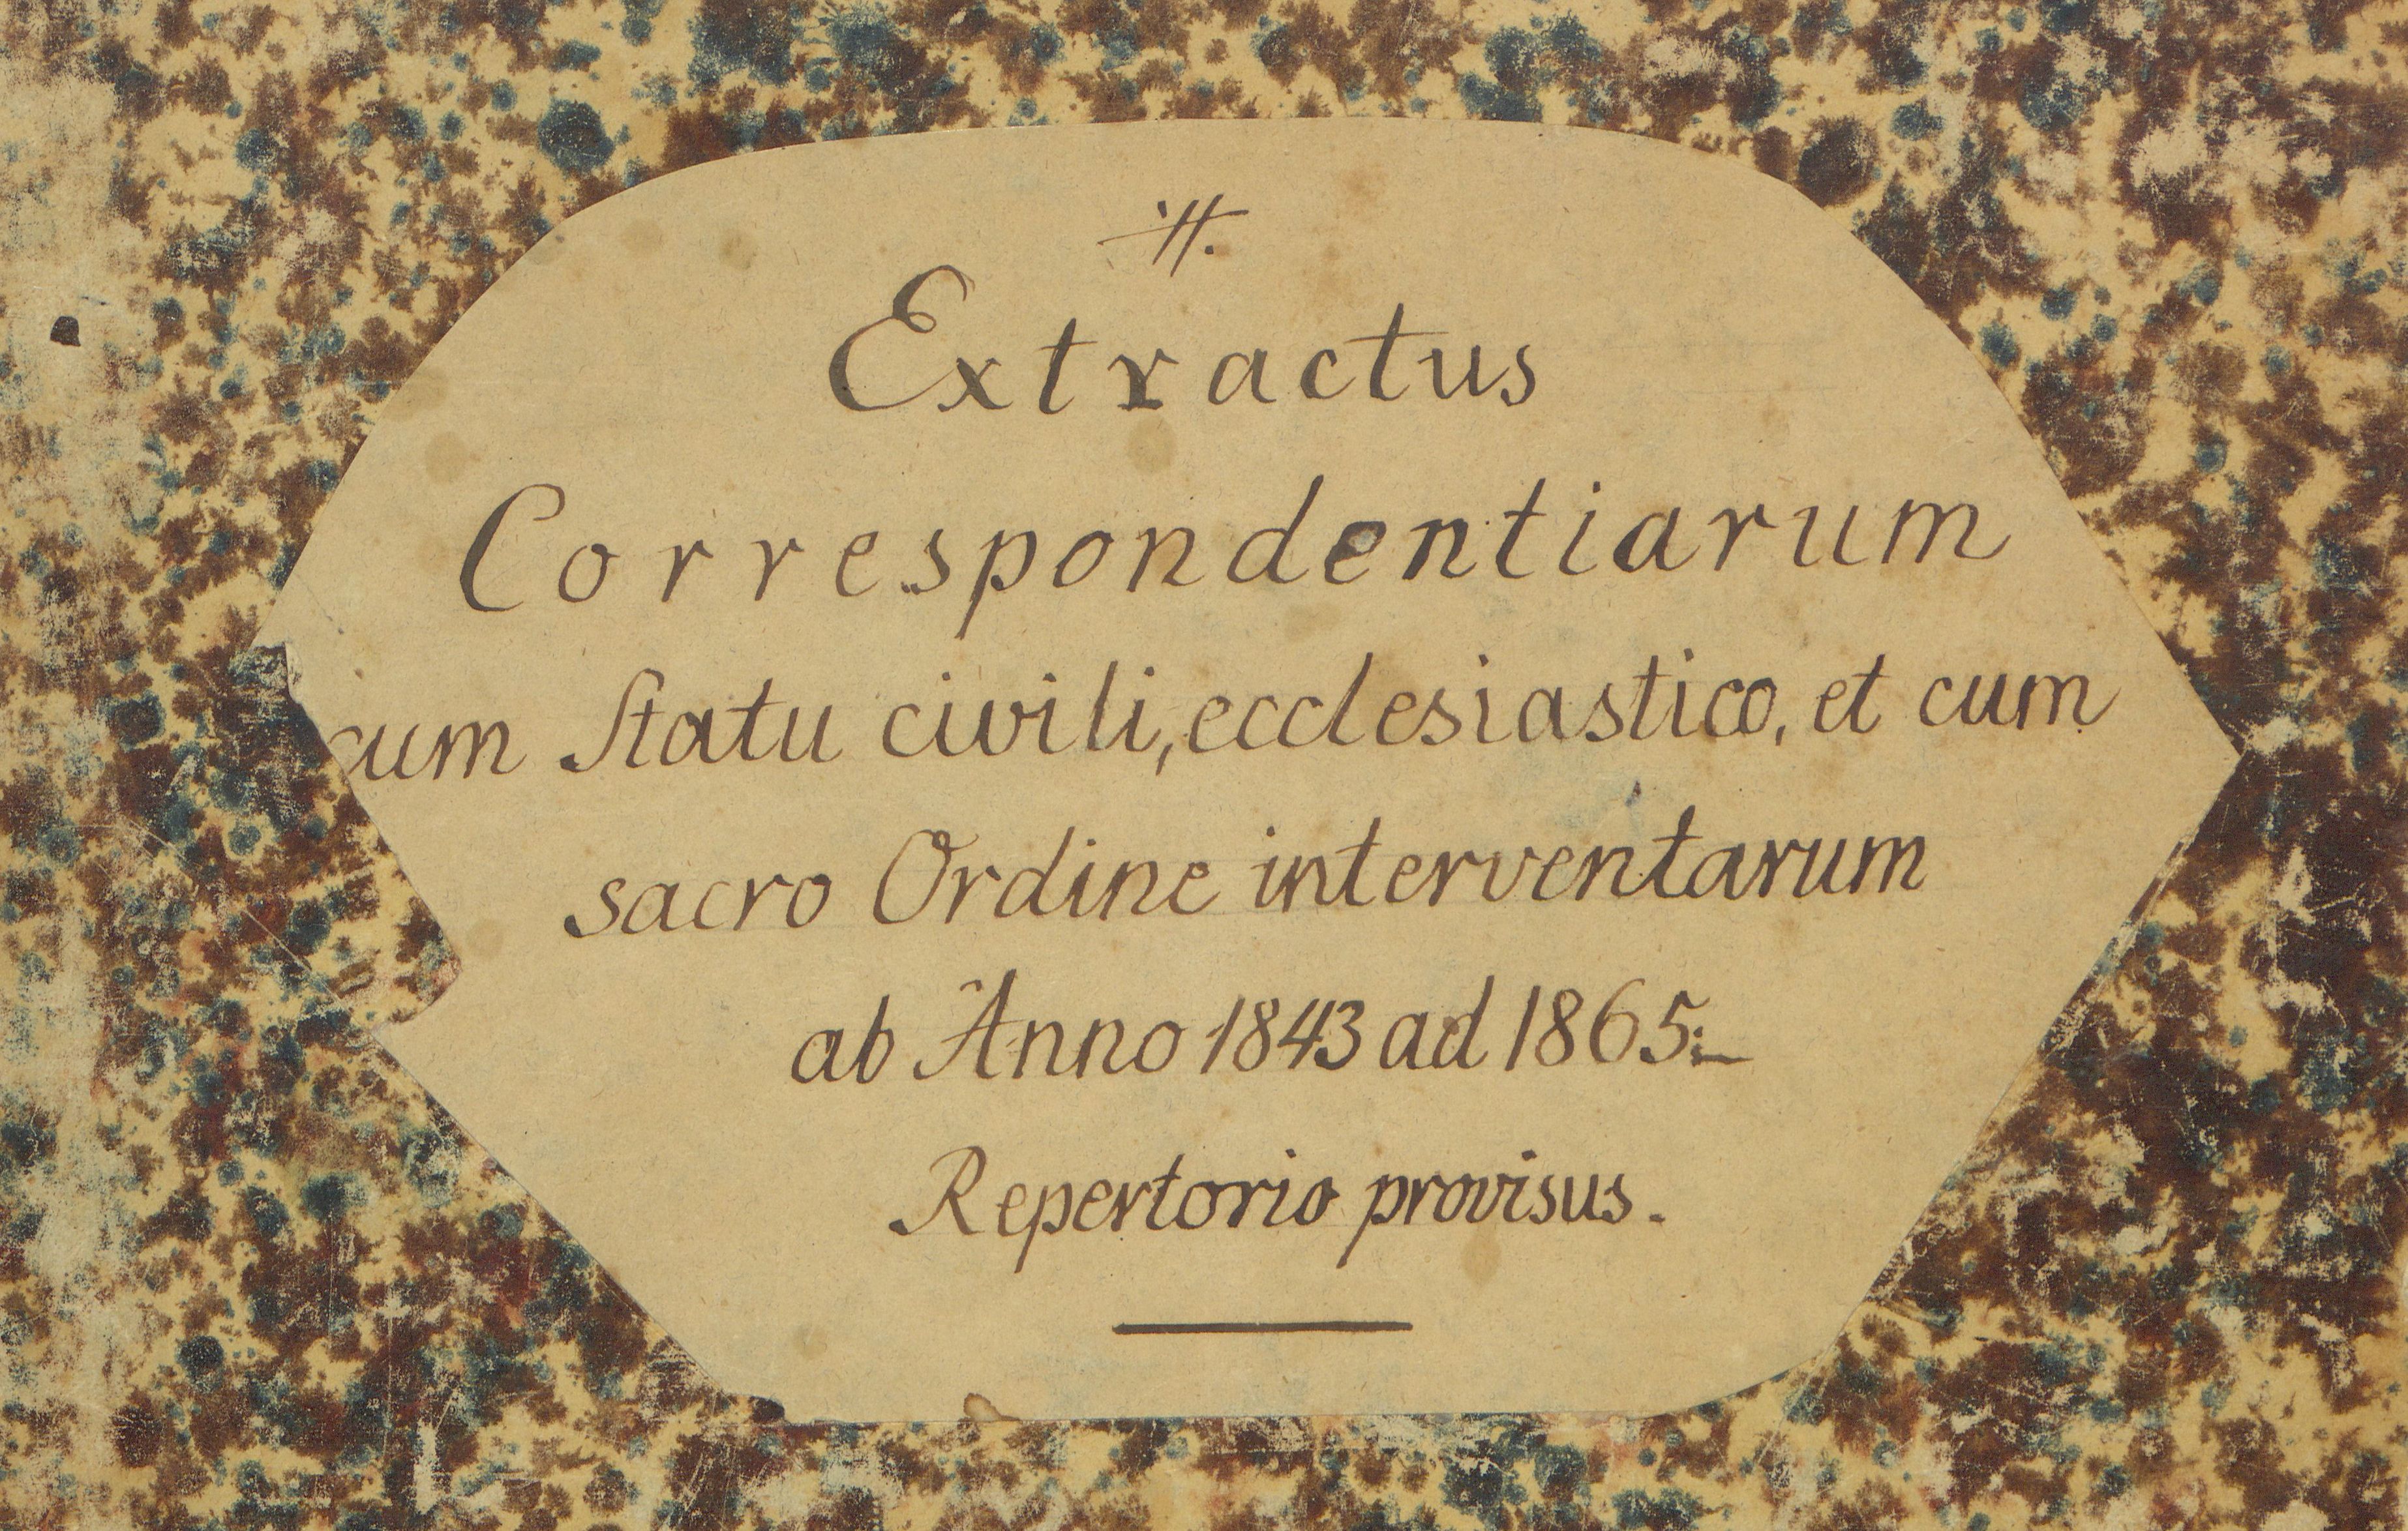 Extractus
Correspondentiarum
cum Statu civili, ecclesiastico, et cum
sacro Ordine interventarum
ab Anno 1843 ad 1865:_
Repertorio provisus.